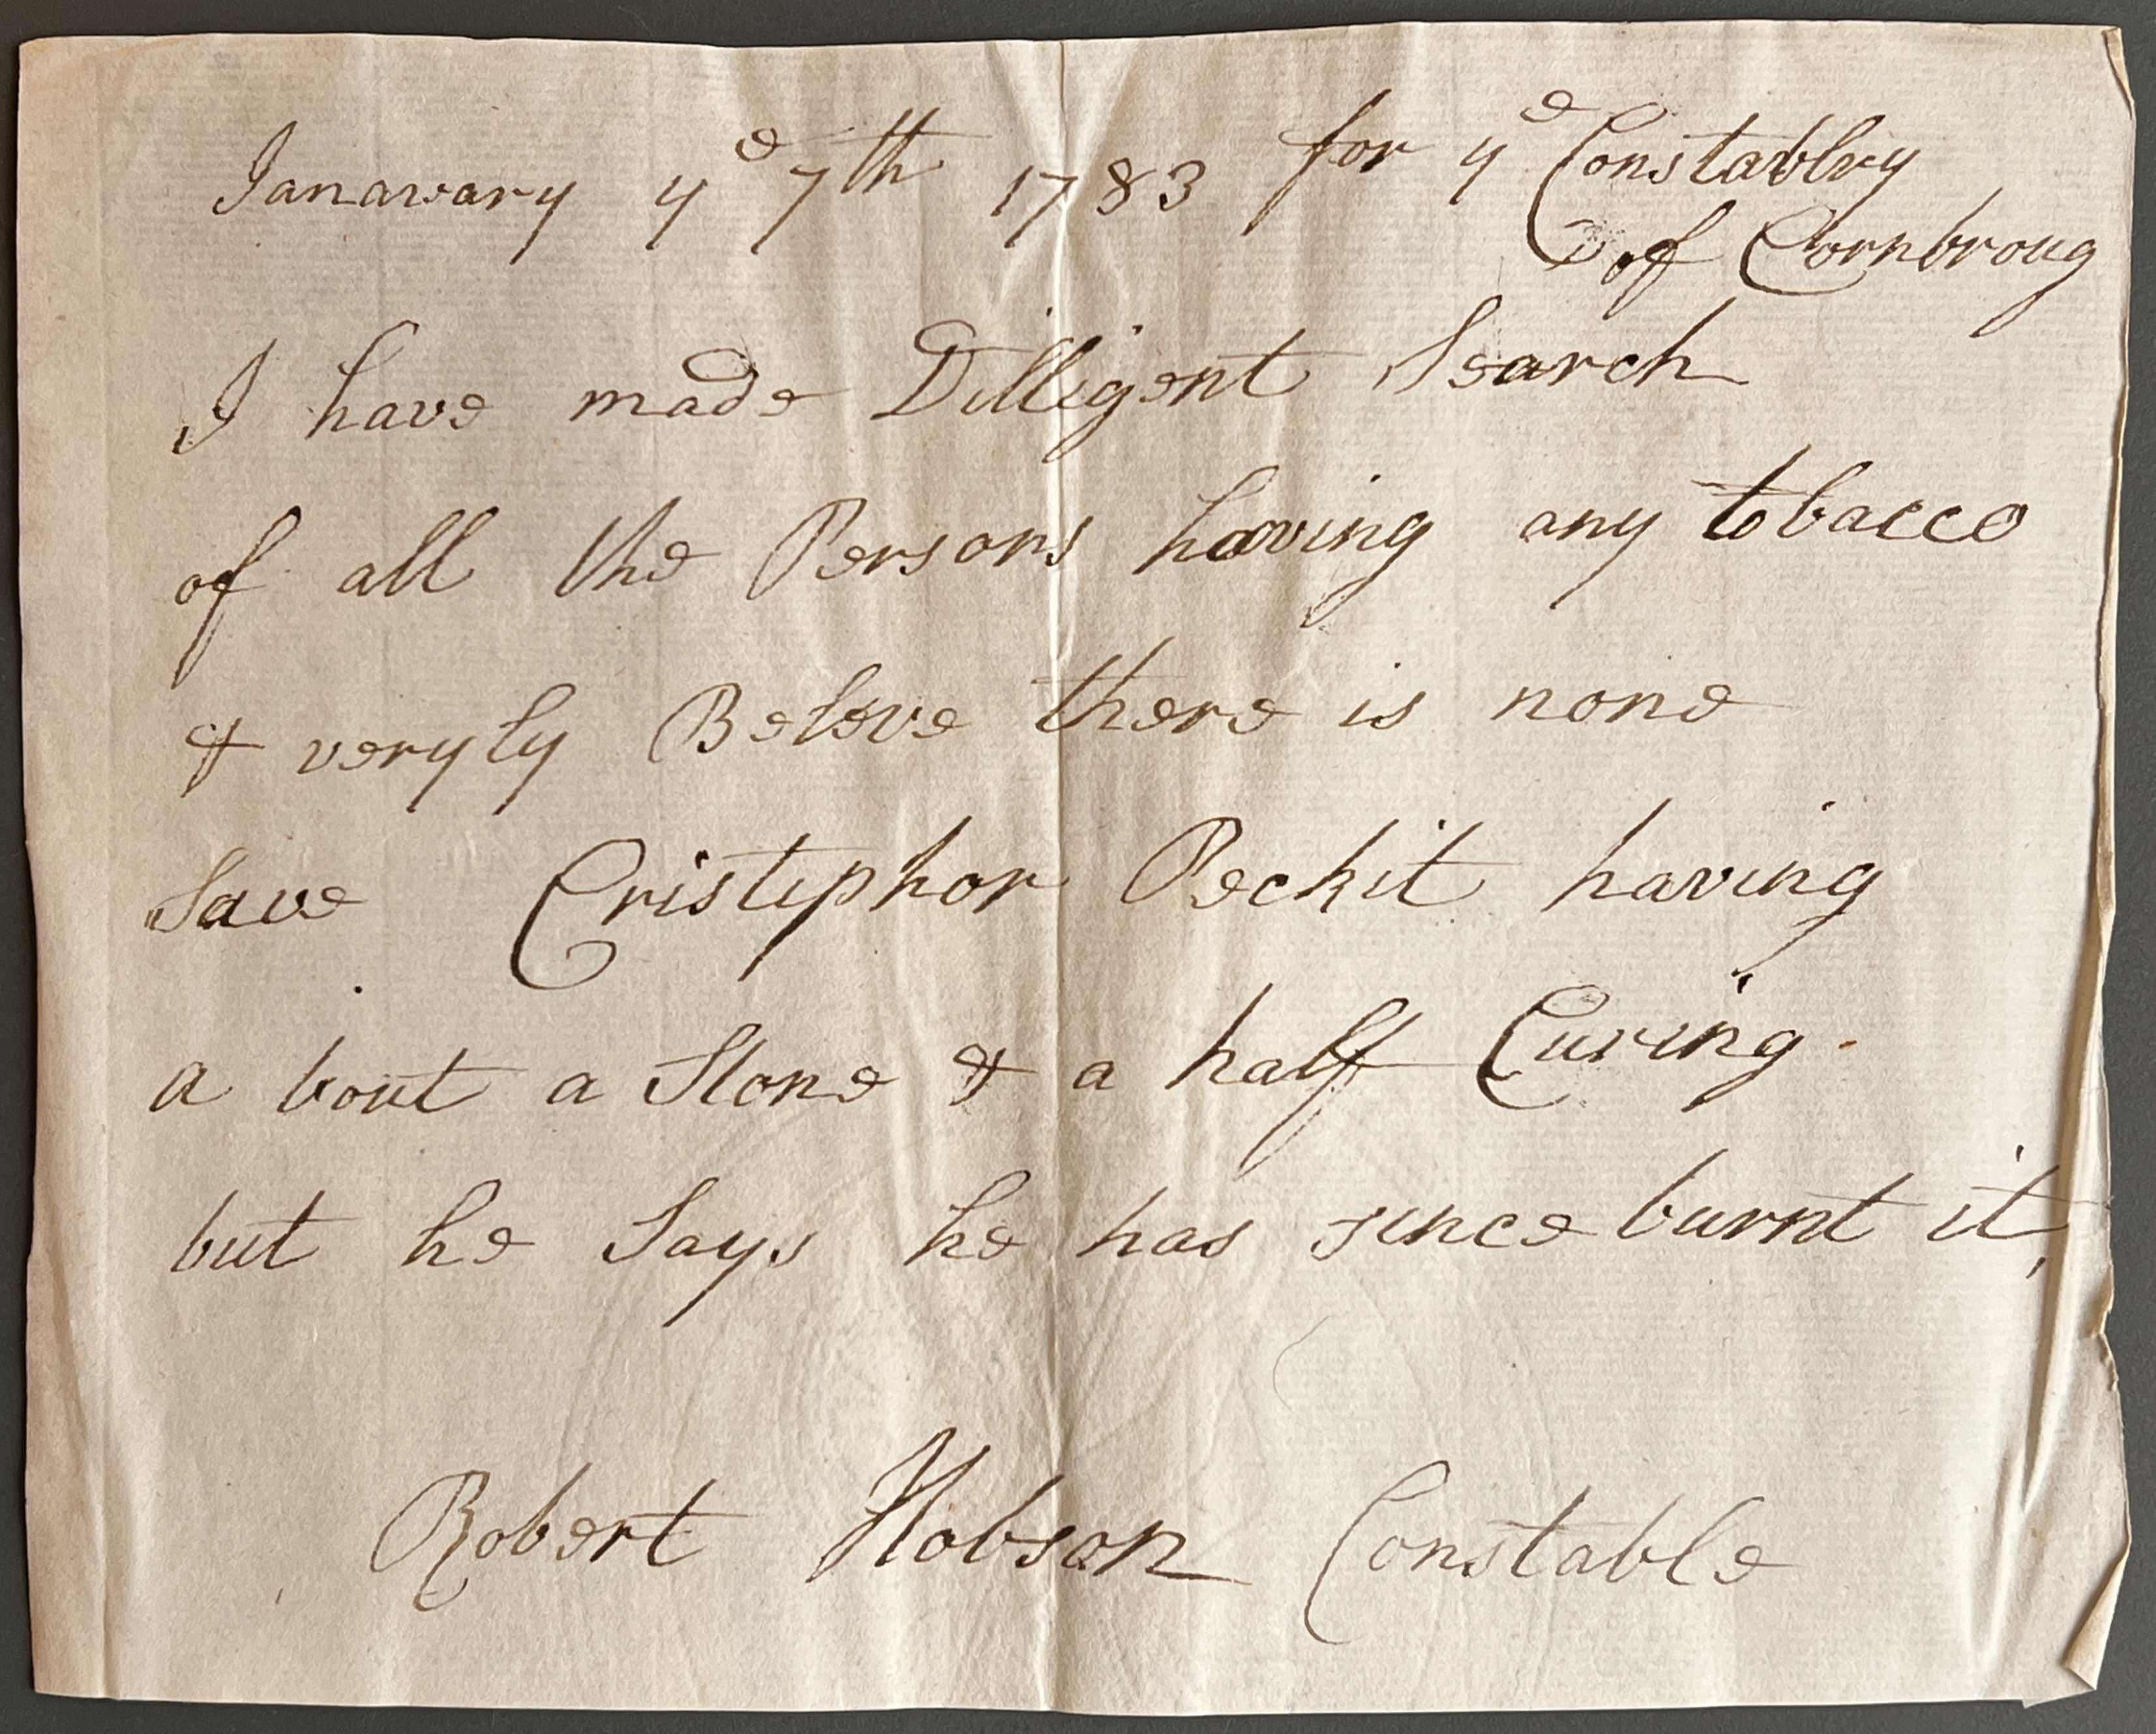 Janawary yᵉ 7th 1783 for yᵉ Constablry
of Cornbroug
I have made Dilligent Search
of all the Persons having any tobacco
& veryly Beleve there is none
Save Cristiphor Peckit having
a bout a Stone & a half Curing.
but he Says he has since burnt it,
Robert Hobson Constable